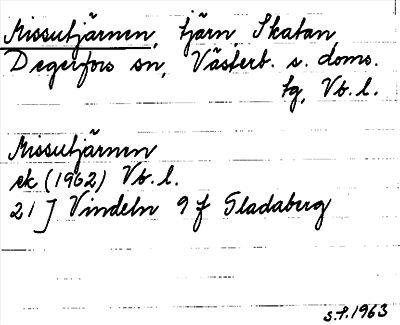 Missutjärnen, tjärn Skatan
Degerfors sn, Västerb. s. doms.
tg, Vb. l.
Missutjärnen
ek (1962) Vb. l.
21 J Vindeln 9 f Fladaberg
S.P. 1963